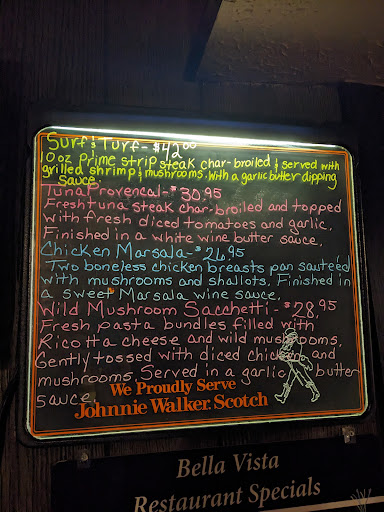 Surf & Turf - $42.00
10 oz prime strip steak char-broiled & served with
grilled shrimp & mushrooms. With a garlic butter dipping
sauce.
Tuna Provencal - $30.95
Fresh tuna steak char-broiled and topped
with fresh diced tomatoes and garlic.
Finished in a white wine butter sauce.
Chicken Marsala - $26.95
Two boneless chicken breasts pan sauteed
with mushrooms and shallots. Finished in
a sweet Marsala wine sauce.
Wild Mushroom Sacchetti - $28.95
Fresh pasta bundles filled with
Ricotta cheese and wild mushrooms.
Gently tossed with diced chicken and
mushrooms. Served in a garlic butter
sauce.
We Proudly Serve
Johnnie Walker Scotch
Bella Vista
Restaurant Specials